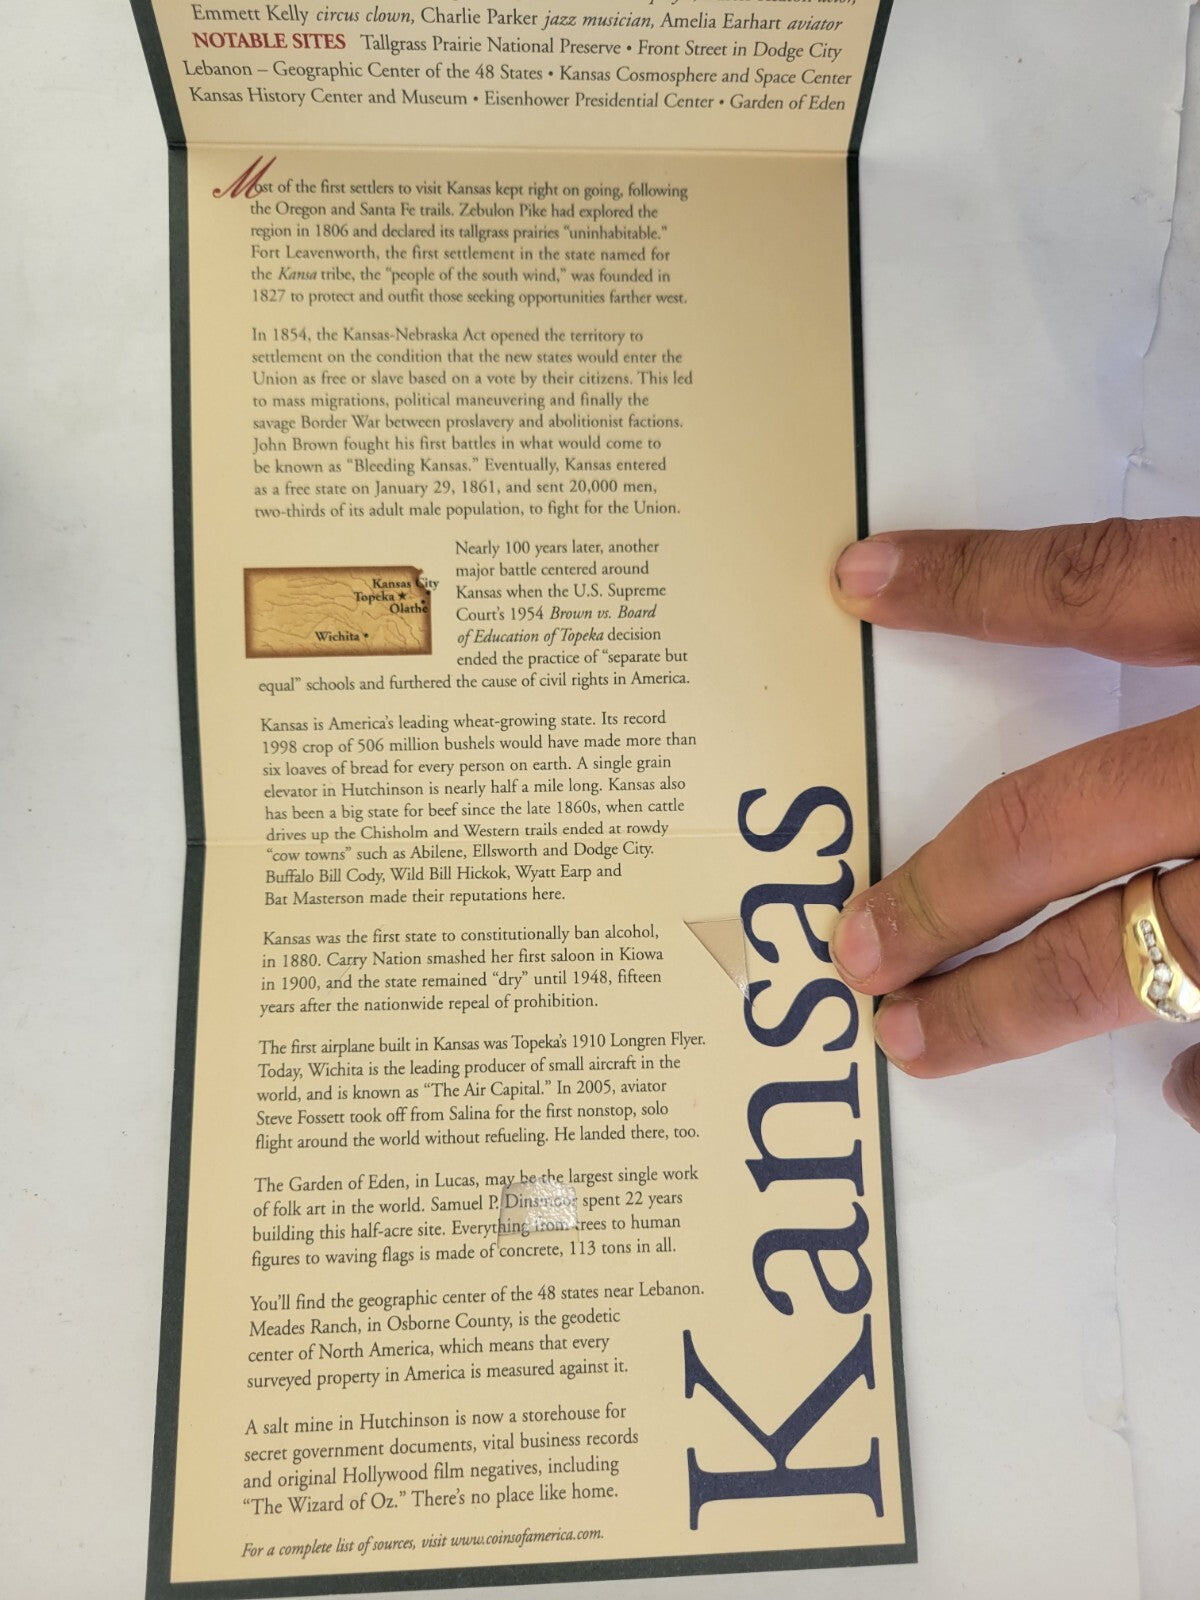 Emmett Kelly circus clown, Charlie Parker jazz musician, Amelia Earhart aviator
NOTABLE SITES Tallgrass Prairie National Preserve • Front Street in Dodge City
Lebanon – Geographic Center of the 48 States • Kansas Cosmosphere and Space Center
Kansas History Center and Museum • Eisenhower Presidential Center • Garden of Eden
Most of the first settlers to visit Kansas kept right on going, following
the Oregon and Santa Fe trails. Zebulon Pike had explored the
region in 1806 and declared its tallgrass prairies “uninhabitable.”
Fort Leavenworth, the first settlement in the state named for
the Kansa tribe, the “people of the south wind,” was founded in
1827 to protect and outfit those seeking opportunities farther west.
In 1854, the Kansas-Nebraska Act opened the territory to
settlement on the condition that the new states would enter the
Union as free or slave based on a vote by their citizens. This led
to mass migrations, political maneuvering and finally the
savage Border War between proslavery and abolitionist factions.
John Brown fought his first battles in what would come to
be known as “Bleeding Kansas.” Eventually, Kansas entered
as a free state on January 29, 1861, and sent 20,000 men,
two-thirds of its adult male population, to fight for the Union.
Kansas City
Topeka
Olathe
Wichita
Nearly 100 years later, another
major battle centered around
Kansas when the U.S. Supreme
Court’s 1954 Brown vs. Board
of Education of Topeka decision
ended the practice of “separate but
equal” schools and furthered the cause of civil rights in America.
Kansas is America’s leading wheat-growing state. Its record
1998 crop of 506 million bushels would have made more than
six loaves of bread for every person on earth. A single grain
elevator in Hutchinson is nearly half a mile long. Kansas also
has been a big state for beef since the late 1860s, when cattle
drives up the Chisholm and Western trails ended at rowdy
“cow towns” such as Abilene, Ellsworth and Dodge City.
Buffalo Bill Cody, Wild Bill Hickok, Wyatt Earp and
Bat Masterson made their reputations here.
Kansas was the first state to constitutionally ban alcohol,
in 1880. Carry Nation smashed her first saloon in Kiowa
in 1900, and the state remained “dry” until 1948, fifteen
years after the nationwide repeal of prohibition.
The first airplane built in Kansas was Topeka’s 1910 Longren Flyer.
Today, Wichita is the leading producer of small aircraft in the
world, and is known as “The Air Capital.” In 2005, aviator
Steve Fossett took off from Salina for the first nonstop, solo
flight around the world without refueling. He landed there, too.
The Garden of Eden, in Lucas, may be the largest single work
of folk art in the world. Samuel P. Dinsmoor spent 22 years
building this half-acre site. Everything from trees to human
figures to waving flags is made of concrete, 113 tons in all.
You’ll find the geographic center of the 48 states near Lebanon.
Meades Ranch, in Osborne County, is the geodetic
center of North America, which means that every
surveyed property in America is measured against it.
A salt mine in Hutchinson is now a storehouse for
secret government documents, vital business records
and original Hollywood film negatives, including
“The Wizard of Oz.” There’s no place like home.
For a complete list of sources, visit www.coinsofamerica.com.
Kansas